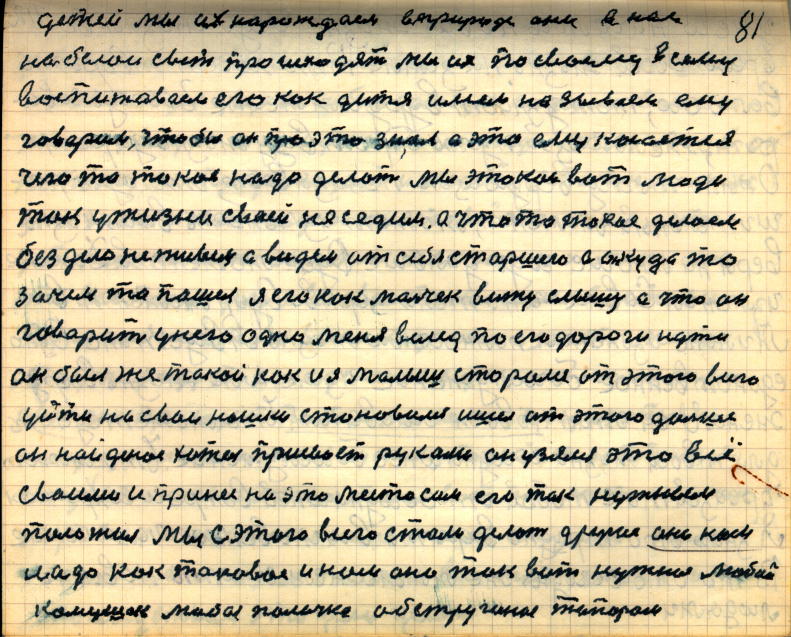 81
детей мы их нарождаем в природе они в нас
на белой свет происходят мы их по своему всему
воспитаваем его как дитя имем называем ему
говорим, чтобы он про это знал а это ему касается
чего то такое надо делать мы этакои вот люди
так у жизни своей не седим. а что то такое делаем
без дела не живем а видем от себя старшего а откуда то
зачем то пашел я его как малчек вижу слышу а что он
говарит у него одно меня вслед по его дороги идти
он был же такой как и я малыш старался от этого всего
уйти на свои ношки становился и шел от этого дальше
он найденое хотел руками он узял это всё
своими и принес на это место сам его так нужным
положил мы с этого всего стали делать другие оно нам
надо как таковое и нам оно так вот нужное любой
камушек любое палочке обструганое топором